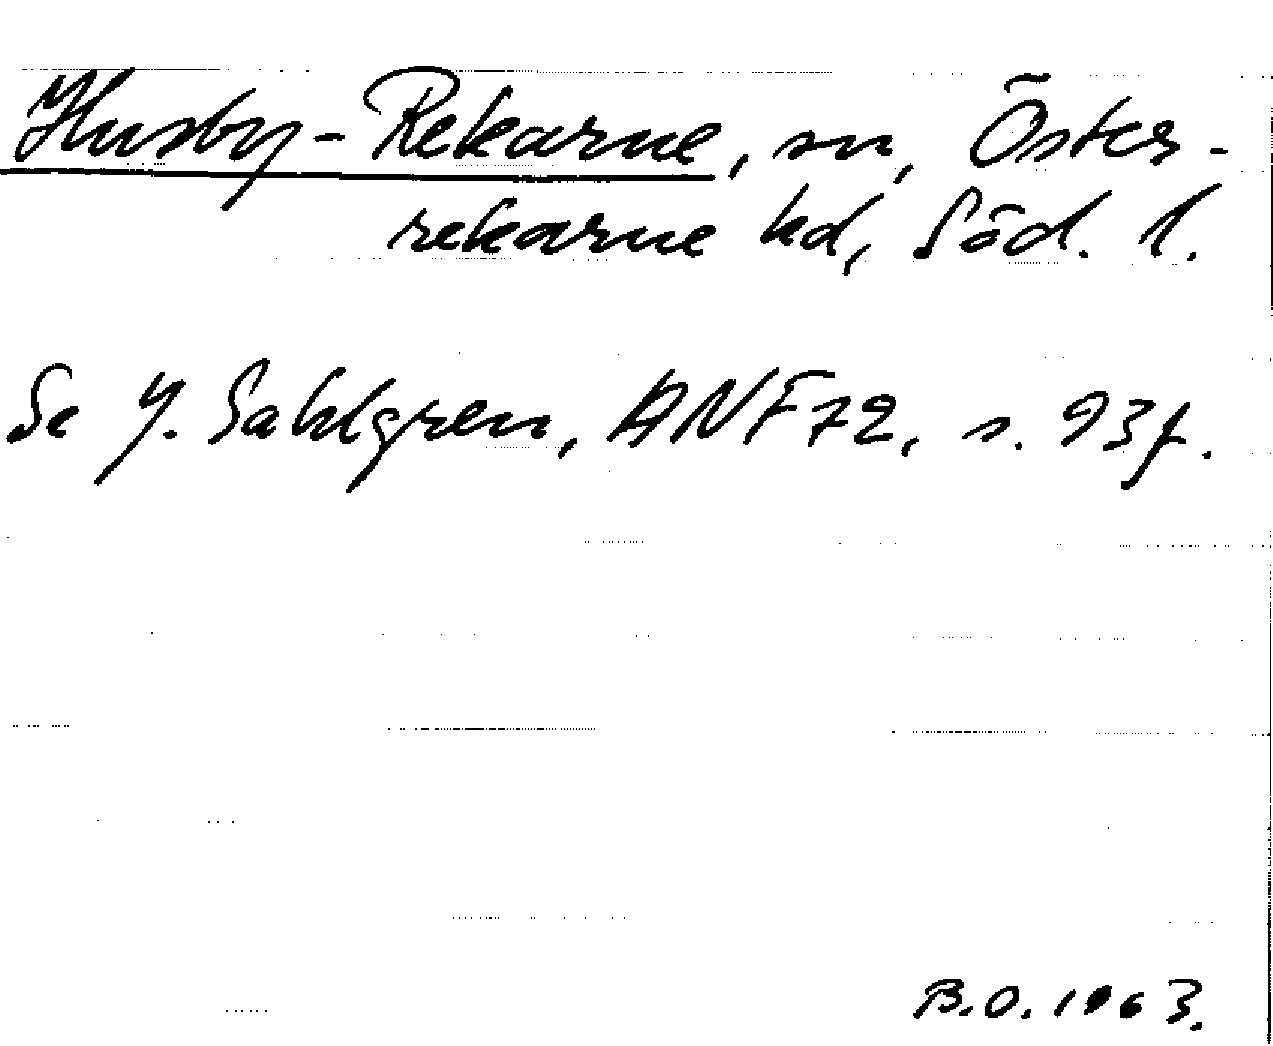 Husby-Rekarne, sn, Öster-
rekarne hd, Söd. l.
Se J. Sahlgren, ANF 72, s. 93 f.
B.O. 1963.